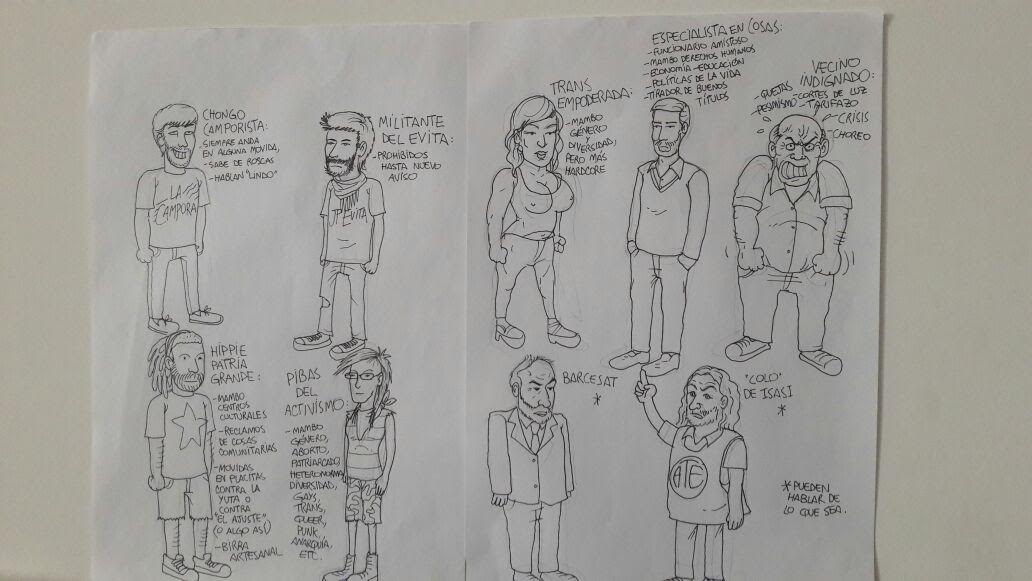 CHONGO
CAMPORISTA:
-SIEMPRE ANDA
EN ALGUNA MOVIDA,
-SABE DE ROSCAS
-HABLAN "LINDO"
LA
CAMPORA
MILITANTE
DEL EVITA:
-PROHIBIDOS
HASTA NUEVO
AVISO
JP EVITA
HIPPIE
PATRIA
GRANDE:
-MAMBO
CENTROS
CULTURALES
-RECLAMOS
DE COSAS
COMUNITARIAS
-MOVIDAS
EN PLACITAS
CONTRA LA
YUTA O
CONTRA
"EL AJUSTE"
(O ALGO ASÍ)
-BIRRA
ARTESANAL
PIBAS
DEL
ACTIVISMO:
-MAMBO
GÉNERO,
ABORTO,
PATRIARCADO,
HETERONORMA
DIVERSIDAD,
GAYS,
TRANS,
QUEER,
PUNK,
ANARQUÍA,
ETC.
TRANS
EMPODERADA:
-MAMBO
GÉNERO
DIVERSIDAD,
PERO MAS
HARDCORE
ESPECIALISTA EN COSAS:
-FUNCIONARIO AMISTOSO
-MAMBO DERECHOS HUMANOS
-ECONOMÍA-EDUCACIÓN
-POLÍTICAS DE LA VIDA
-TIRADOR DE BUENOS
TÍTULOS
VECINO
INDIGNADO:
-QUEJAS -CORTES DE LUZ
-PESIMISMO -TARIFAZO
-CRISIS
-CHOREO
BARCESAT
*
"COLO"
DE ISASI
*
ATE
*PUEDEN
HABLAR DE
LO QUE SEA.